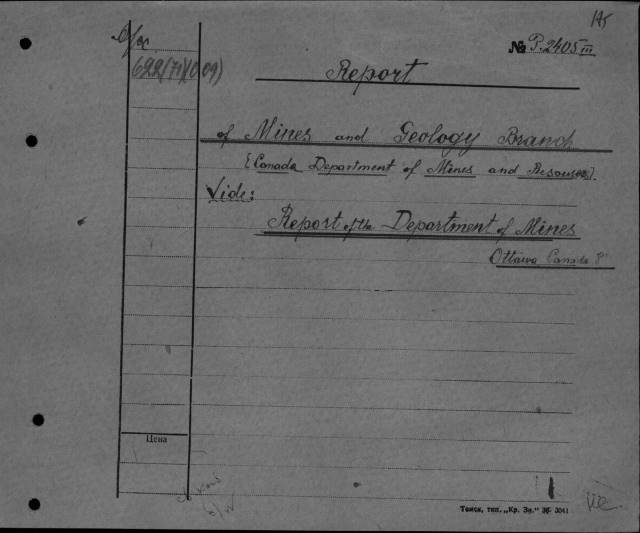 № P.2405 III
622(71)(0.09)
Report
of Mines and Geology Branch
(Canada Department of Mines and Resources)
Vide:
Report of the Department of Mines
Ottawa Canada
Цена
Томск, тип. „Кр. Зн.“